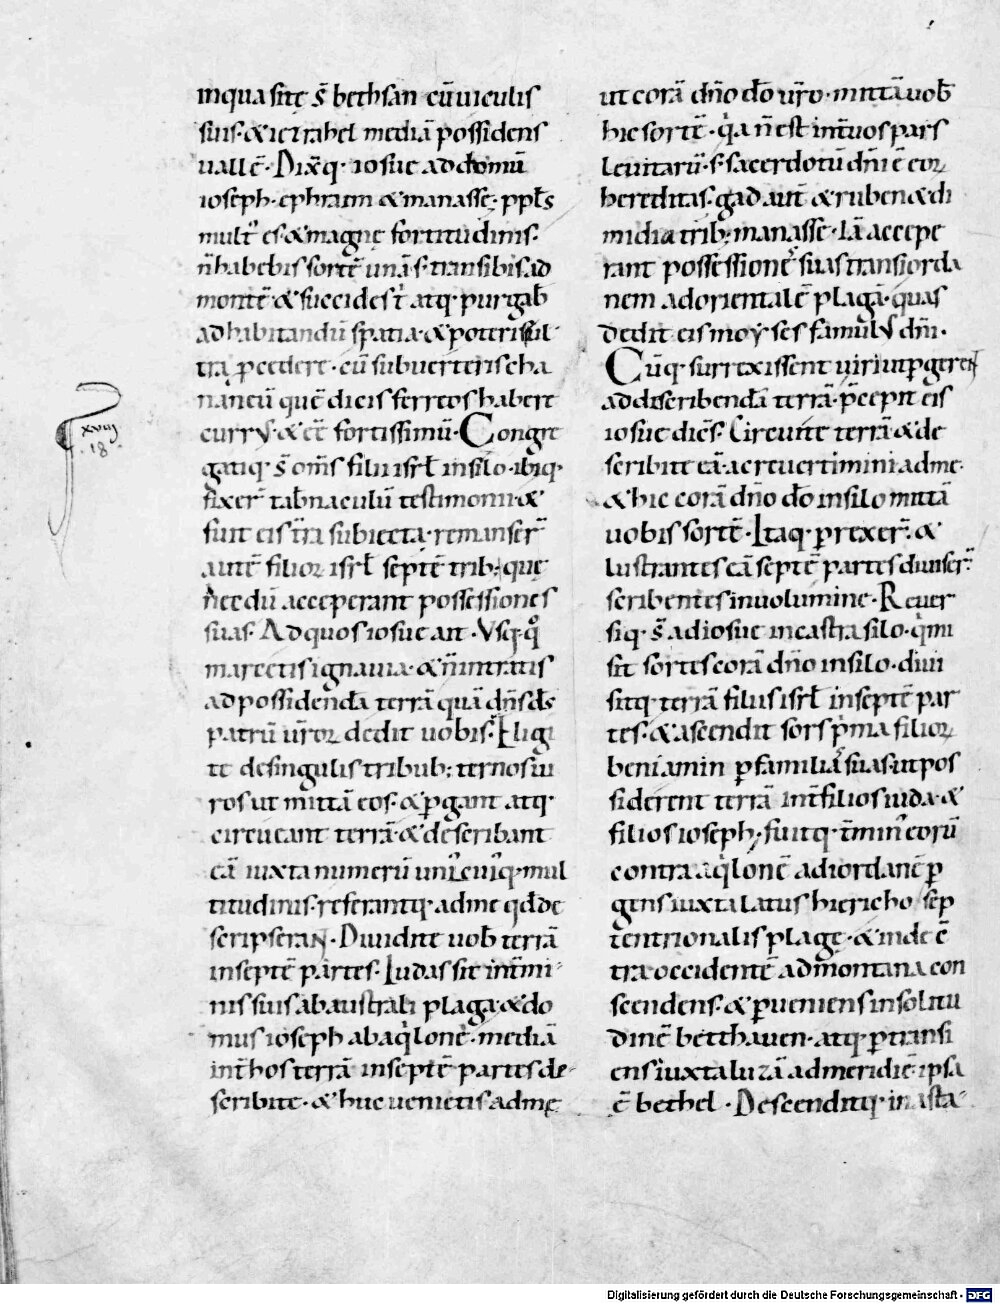 inqua sitę s̄ bethsan cū uiculis
suis· & iezrahel mediā possidens
uallē· Dix̄q· iosue ad domū
ioseph· ephraim & manasse· ppl̄s
mult᾽ es· & magnę fortitudinis·
n̄ habebis sortē unā· s· transibis ad
montē & succides t᾽ atq· purgab̄
ad habitandū spatia· & poteris ul
tra p̄cedere· cū subuerteris cha
naneū quē dicis ferreos habere
currus· & eē fortissimū· Congre
gatiq· s̄ om̄s filii isrl̄ in silo· ibiq·
fixer̄ tab̄naculū testimonii· &
fuit eis t̄ra subiecta· remanser̄
autē filioꝝ isrl̄ septē trib; quę
necdū acceperant possessiones
suas· Ad quos iosue ait· Vsq· q̊
marcetis ignauia· & n̄ intratis
ad possidendā terrā quā dn̄s ds̄
patrū ur̄oꝝ dedit uobis· Eligi
te de singulis tribub; ternos ui
ros ut mittā eos· & ꝑgant atq·
circueant terrā· & describant
eā iuxta numerū uni᾽cui᾽q· mul
titudinis· referantq· ad me qd̄ de
scripserant· Diuidite uob̄ terrā
in septē partes· Iudas sit in t̄mi
nis suis ab australi plaga· & do
mus ioseph ab aq̇lone· mediā
int̄ hos terrā in septē partes de
scribite· & huc uenietis ad me
ut corā dn̄o dō ur̄o· mittā uob̄
hic sortē· q̇a n̄ est int̄ uos pars
leuitarū· s· sacerdotū dn̄i ē eoꝝ
hereditas· gad aut̄ & ruben & di
midia trib; manasse· iā accepe
rant possessionēs suas trans iorda
nem ad orientalē plagā· quas
dedit eis moyses famulus dn̄i·
Cūq· surrexissent uiri ut ꝑgerent
ad describendā terrā· p̄cepit eis
iosue dicēs· Circuite terrā & de
scribite eā· ac reuertimini ad me·
& hic corā dn̄o dō in silo mittā
uobis sortē· Itaq· ꝑrexer̄· &
lustrantes eā septē partes diuiser̄
scribentes in uolumine· Reuer
siq· s̄ ad iosue in castra silo· q̇ mi
sit sortes corā dn̄o in silo· diui
sitq· terrā filiis isrl̄ in septē par
tes· & ascendit sors ṗma filioꝝ
beniamin ꝑ familias suas· ut pos
siderent terrā int̄ filios iuda· &
filios ioseph· fuitq· t̄min᾽ eorū
contra aq̇lonē ad iordanē ꝑ
gens iuxta latus hiericho sep
tentrionalis plagę· & inde cō
tra occidentē ad montana con
scendens· & ꝑueniens in solitu
dinē bethauen· atq· ꝑtransi
ens iuxta luzā ad meridiē· ipsa
ē bethel· Descenditq· in asta
xviij
·18·
Digitalisierung gefördert durch die Deutsche Forschungsgemeinschaft - DFG